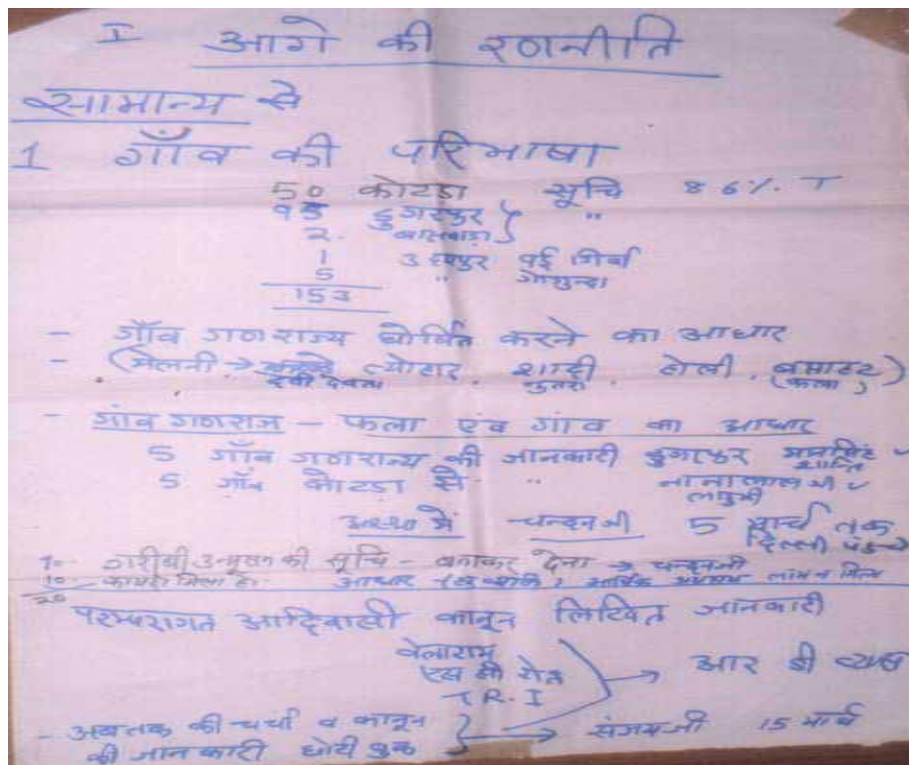 I आगे की रणनीति
सामान्य से
1 गाँव की परिभाषा
50 कोटडा सूचि 86%. T
95 डुगरपुर } "
2. बासवाडा
1 उदयपुर वई गिर्वा
5 " गोगुन्दा
153
- गाँव गणराज्य घोषित करने का आधार
- (मेलनी → त्योहार, शादी, होली,
देवी देवता नुतरा
- गांव गणराज - फला एंव गांव का आधार
5 गाँव गणराज्य की जानकारी डुगरपुर मानसिंह ✓
शान्ति
5 गाँव कोटडा से " नानालाल जी ✓
चन्दनजी 5 मार्च तक
दिल्ली
10- गरीबी उन्मूलन की सूचि - बनाकर देना → चन्दनजी
10- फायदा मिला है। आधार
20
परम्परागत आदिवासी कानून लिखित जानकारी
वेलाराम
T.R.I → आर डी व्यास
- अबतक की चर्चा व कानून
की जानकारी छोटी बुक } → संजयजी 15 मार्च